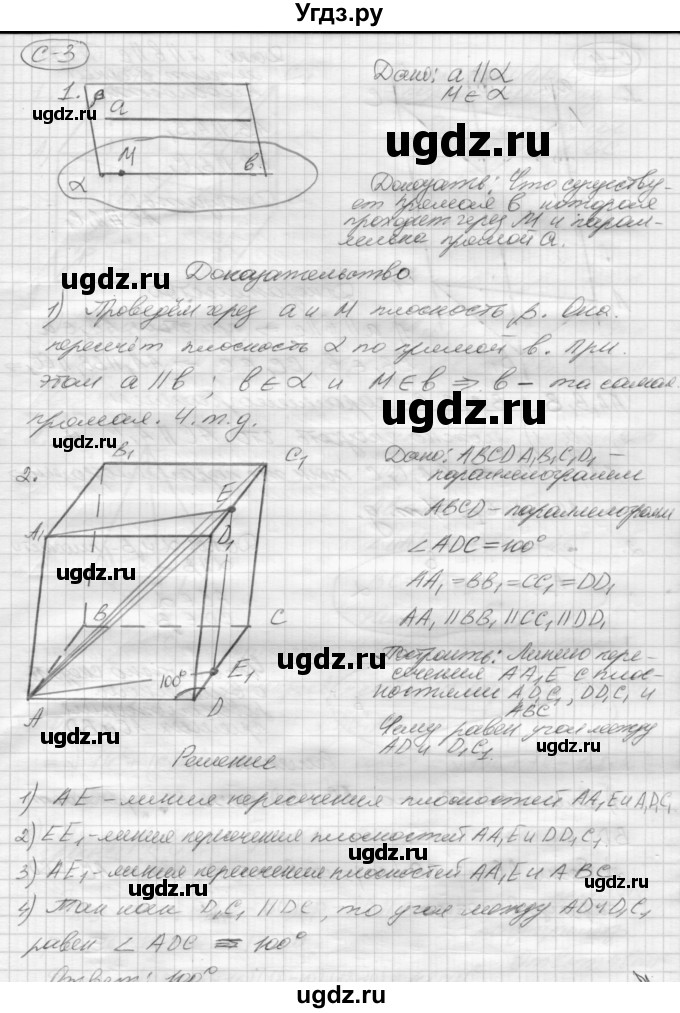 Угдз.ру
С-3
Дано: a || α
M ∈ α
1. β
a
M
α
в
Доказать: Что существу-
ет прямая в которая
проходит через М и парал-
лельна прямой а.
Доказательство
1) Проведём через а и М плоскость β. Она
пересечёт плоскость α по прямой в. При
этом a || в ; в ∈ α и M ∈ в ⇒ в - та самая
прямая. Ч.т.д.
2.
B₁
C₁
E
A₁
D₁
B
C
E₁
100°
A
D
Дано: ABCDA₁B₁C₁D₁ –
параллелограмм
ABCD – параллелограмм
∠ADC = 100°
AA₁ = BB₁ = CC₁ = DD₁
AA₁ || BB₁ || CC₁ || DD₁
Построить: Линию пере-
сечения AA₁E с плос-
костями AD₁C₁, DD₁C₁ и
ABC
Чему равен угол между
AD и D₁C₁
Решение
1) AE – линия пересечения плоскостей AA₁E и AD₁C₁
2) EE₁ – линия пересечения плоскостей AA₁E и DD₁C₁
3) AE₁ – линия пересечения плоскостей AA₁E и ABC
4) Так как D₁C₁ || DC, то угол между AD и D₁C₁
равен ∠ADC = 100°
Ответ: 100°
ugdz.ru
ugdz.ru
ugdz.ru
ugdz.ru
ugdz.ru
ugdz.ru
ugdz.ru
ugdz.ru
ugdz.ru
ugdz.ru
ugdz.ru
ugdz.ru
ugdz.ru
ugdz.ru